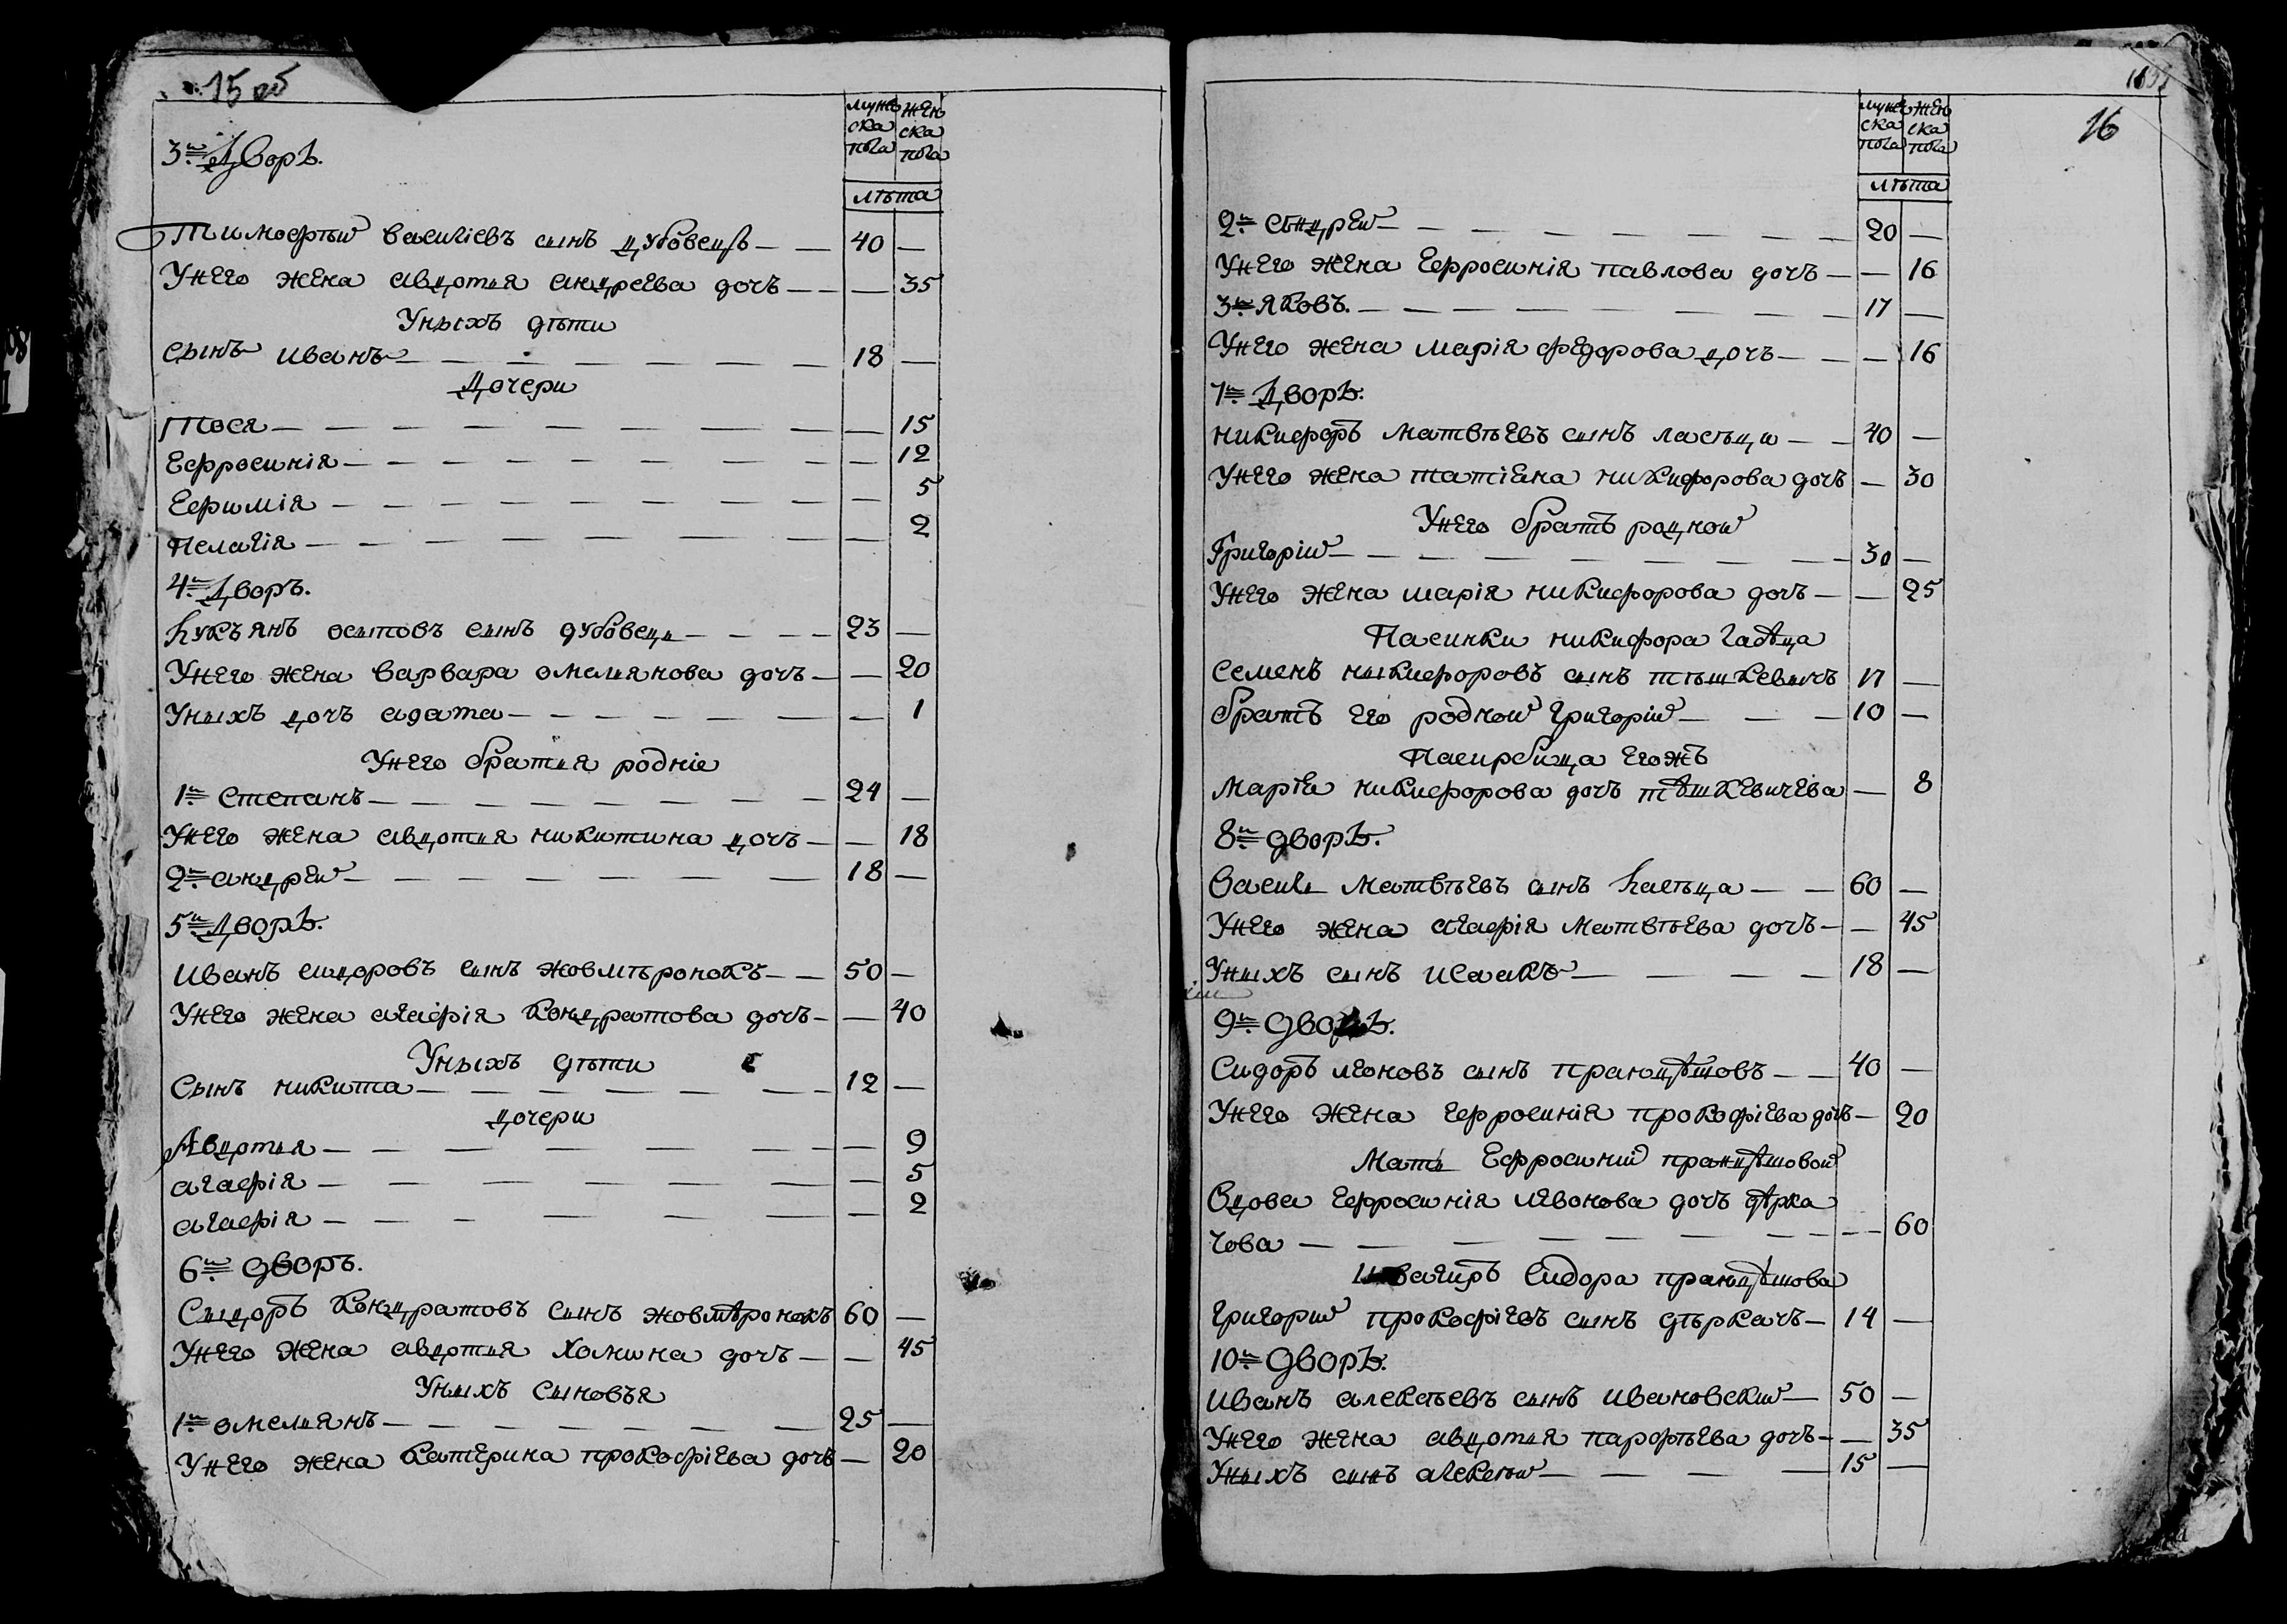 15 об
3й Дворъ.
мужс ска пола
жен ска пола
лѣта
Тимофѣй василіевъ сынъ дубовецъ — — 40 —
Унего жена авдотия андреева дочъ — — — 35
Уныхъ дѣти
сынъ иванъ — — — — — — 18 —
Дочери
Тося — — — — — — — — 15
Ефросинія — — — — — — — — 12
Ефимія — — — — — — — — 5
Пелагія — — — — — — — — 2
4й Дворъ.
Лукъянъ осиповъ сынъ дубовецъ — — — — 23 —
Унего жена варвара омелиянова дочъ — — 20
Уныхъ дочъ агата — — — — — — — 1
Унего братия родніе
1й степанъ — — — — — — — — 24 —
Унего жена авдотия никитина дочъ — — 18
2й андрей — — — — — — — 18 —
5й Дворъ.
иванъ сидоровъ сынъ жовмѣронокъ — — 50 —
Унего жена агафія кондратова дочъ — — 40
Уныхъ дѣти
Сынъ никита — — — — — — — 12 —
дочери
Авдотия — — — — — — — — 9
агафія — — — — — — — 5
агафія — — — — — — — 2
6й дворъ.
Сидоръ кондратовъ сынъ жовмѣронокъ 60 —
Унего жена авдотия хомина дочъ — — 45
Уныхъ сыновъя
1й омелиянъ — — — — — — — 25 —
Унего жена катерина прокофіева дочъ — 20
16
мужс ска пола
жен ска пола
лѣта
2й андрей — — — — — — — — 20 —
Унего жена Ефросинія павлова дочъ — — 16
3й яковъ. — — — — — — — — 17 —
Унего жена марія федорова дочъ — — — 16
7й Дворъ.
никифоръ матвѣевъ сынъ ласѣца — — 40 —
Унего жена татіяна никифорова дочъ — 30
Унего братъ родной
Григорій — — — — — — — — 30 —
Унего жена марія никифорова дочъ — — 25
Пасинки никифора ласѣца
Семенъ никифоровъ сынъ тѣшкевичъ 17 —
братъ его родной григорій — — — 10 —
Пасирбица егожъ
марія никифорова дочъ тѣшкевичева — 8
8й дворъ.
Василь матвѣевъ сынъ ласѣца — — 60 —
Унего жена агафія матвѣева дочъ — — 45
Уныхъ сынъ исаакъ — — — — 18 —
9й дворъ.
Сидоръ леоновъ сынъ пранцѣшовъ — — 40 —
Унего жена ефросинія прокофіева дочъ — 20
Мать Ефросиній пранцѣшовой
Вдова ефросинія левонова дочъ дѣрка
чова — — — — — — — — — 60
Швагиръ Сидора пранцѣшова
григорий прокофіевъ сынъ дѣркачъ — 14 —
10й дворъ.
иванъ алексѣевъ сынъ ивановский — 50 —
Унего жена авдотия парфѣева дочъ — — 35
Уныхъ сынъ алексѣй — — — — 15 —